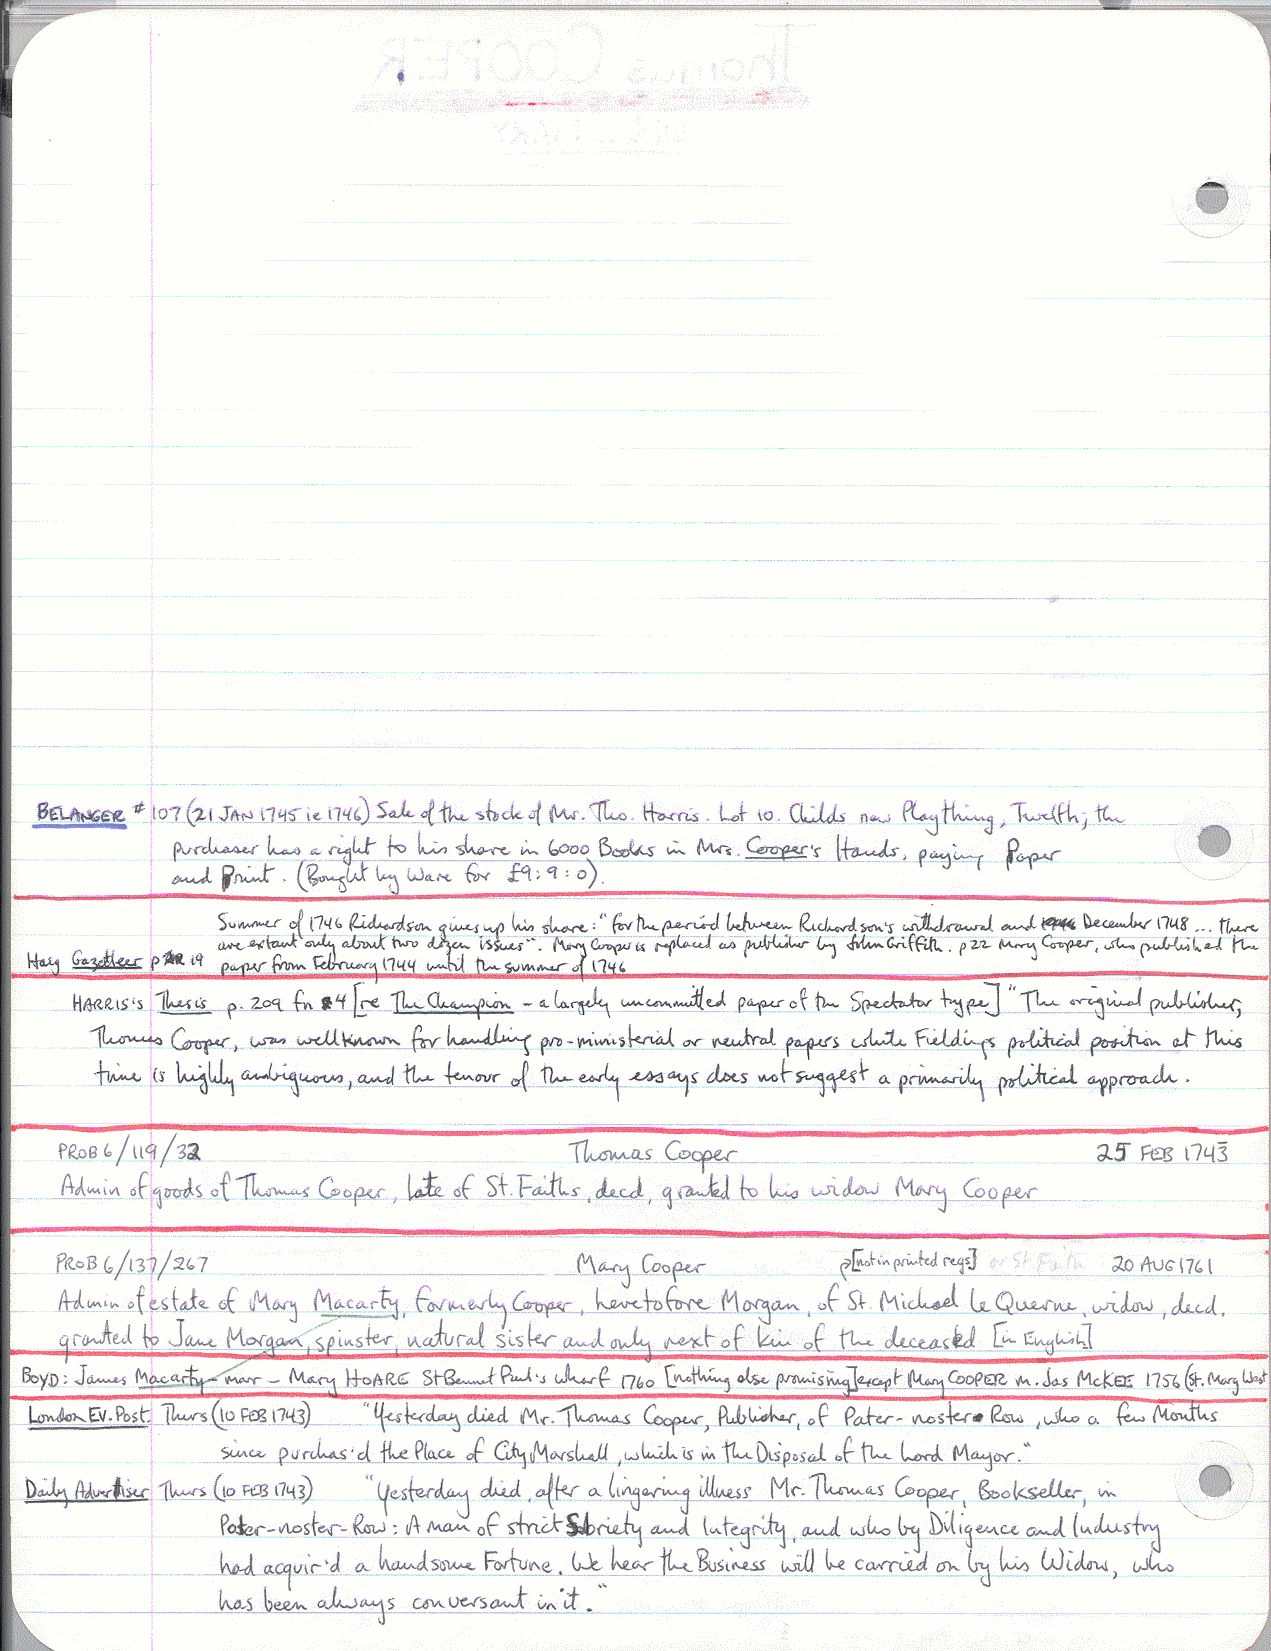 BELANGER # 107 (21 JAN 1745 ie 1746) Sale of the stock of Mr. Tho. Harris. Lot 10. Childs new Plaything, Twelfth; the
purchaser has a right to his share in 6000 Books in Mrs. Cooper's Hands, paying Paper
and Print. (Bought by Ware for £9:9:0).
Summer of 1746 Richardson gives up his share: "for the period between Richardson's withdrawal and December 1748 ... there
are extant only about two dozen issues". Mary Cooper is replaced as publisher by John Griffith. p22 Mary Cooper, who published the
Haig Gazetteer p 19 paper from February 1744 until the summer of 1746
HARRIS's Thesis p. 209 fn 4 [re The Champion - a largely uncommitted paper of the Spectator type] "The original publisher,
Thomas Cooper, was well known for handling pro-ministerial or neutral papers while Fielding's political position at this
time is highly ambiguous, and the tenour of the early essays does not suggest a primarily political approach.
PROB 6/119/32 Thomas Cooper 25 FEB 1743
Admin of goods of Thomas Cooper, late of St. Faiths, decd, granted to his widow Mary Cooper
PROB 6/137/267 Mary Cooper [not in printed regs] or St Faith 20 AUG 1761
Admin of estate of Mary Macarty, formerly Cooper, heretofore Morgan, of St. Michael le Querne, widow, decd.
granted to Jane Morgan, spinster, natural sister and only next of kin of the deceased [in English]
BOYD: James Macarty - marr - Mary HOARE St Bennet Paul's Wharf 1760 [nothing else promising] except Mary COOPER m. Jas McKEE 1756 (St. Mary West
London Ev. Post. Thurs (10 FEB 1743) "Yesterday died Mr. Thomas Cooper, Publisher, of Pater-noster Row, who a few Months
since purchas'd the Place of City Marshall, which is in the Disposal of the Lord Mayor."
Daily Advertiser Thurs (10 FEB 1743) "Yesterday died, after a lingering illness Mr. Thomas Cooper, Bookseller, in
Pater-noster-Row: A man of strict Sobriety and Integrity, and who by Diligence and Industry
had acquir'd a handsome Fortune. We hear the Business will be carried on by his Widow, who
has been always conversant in it."